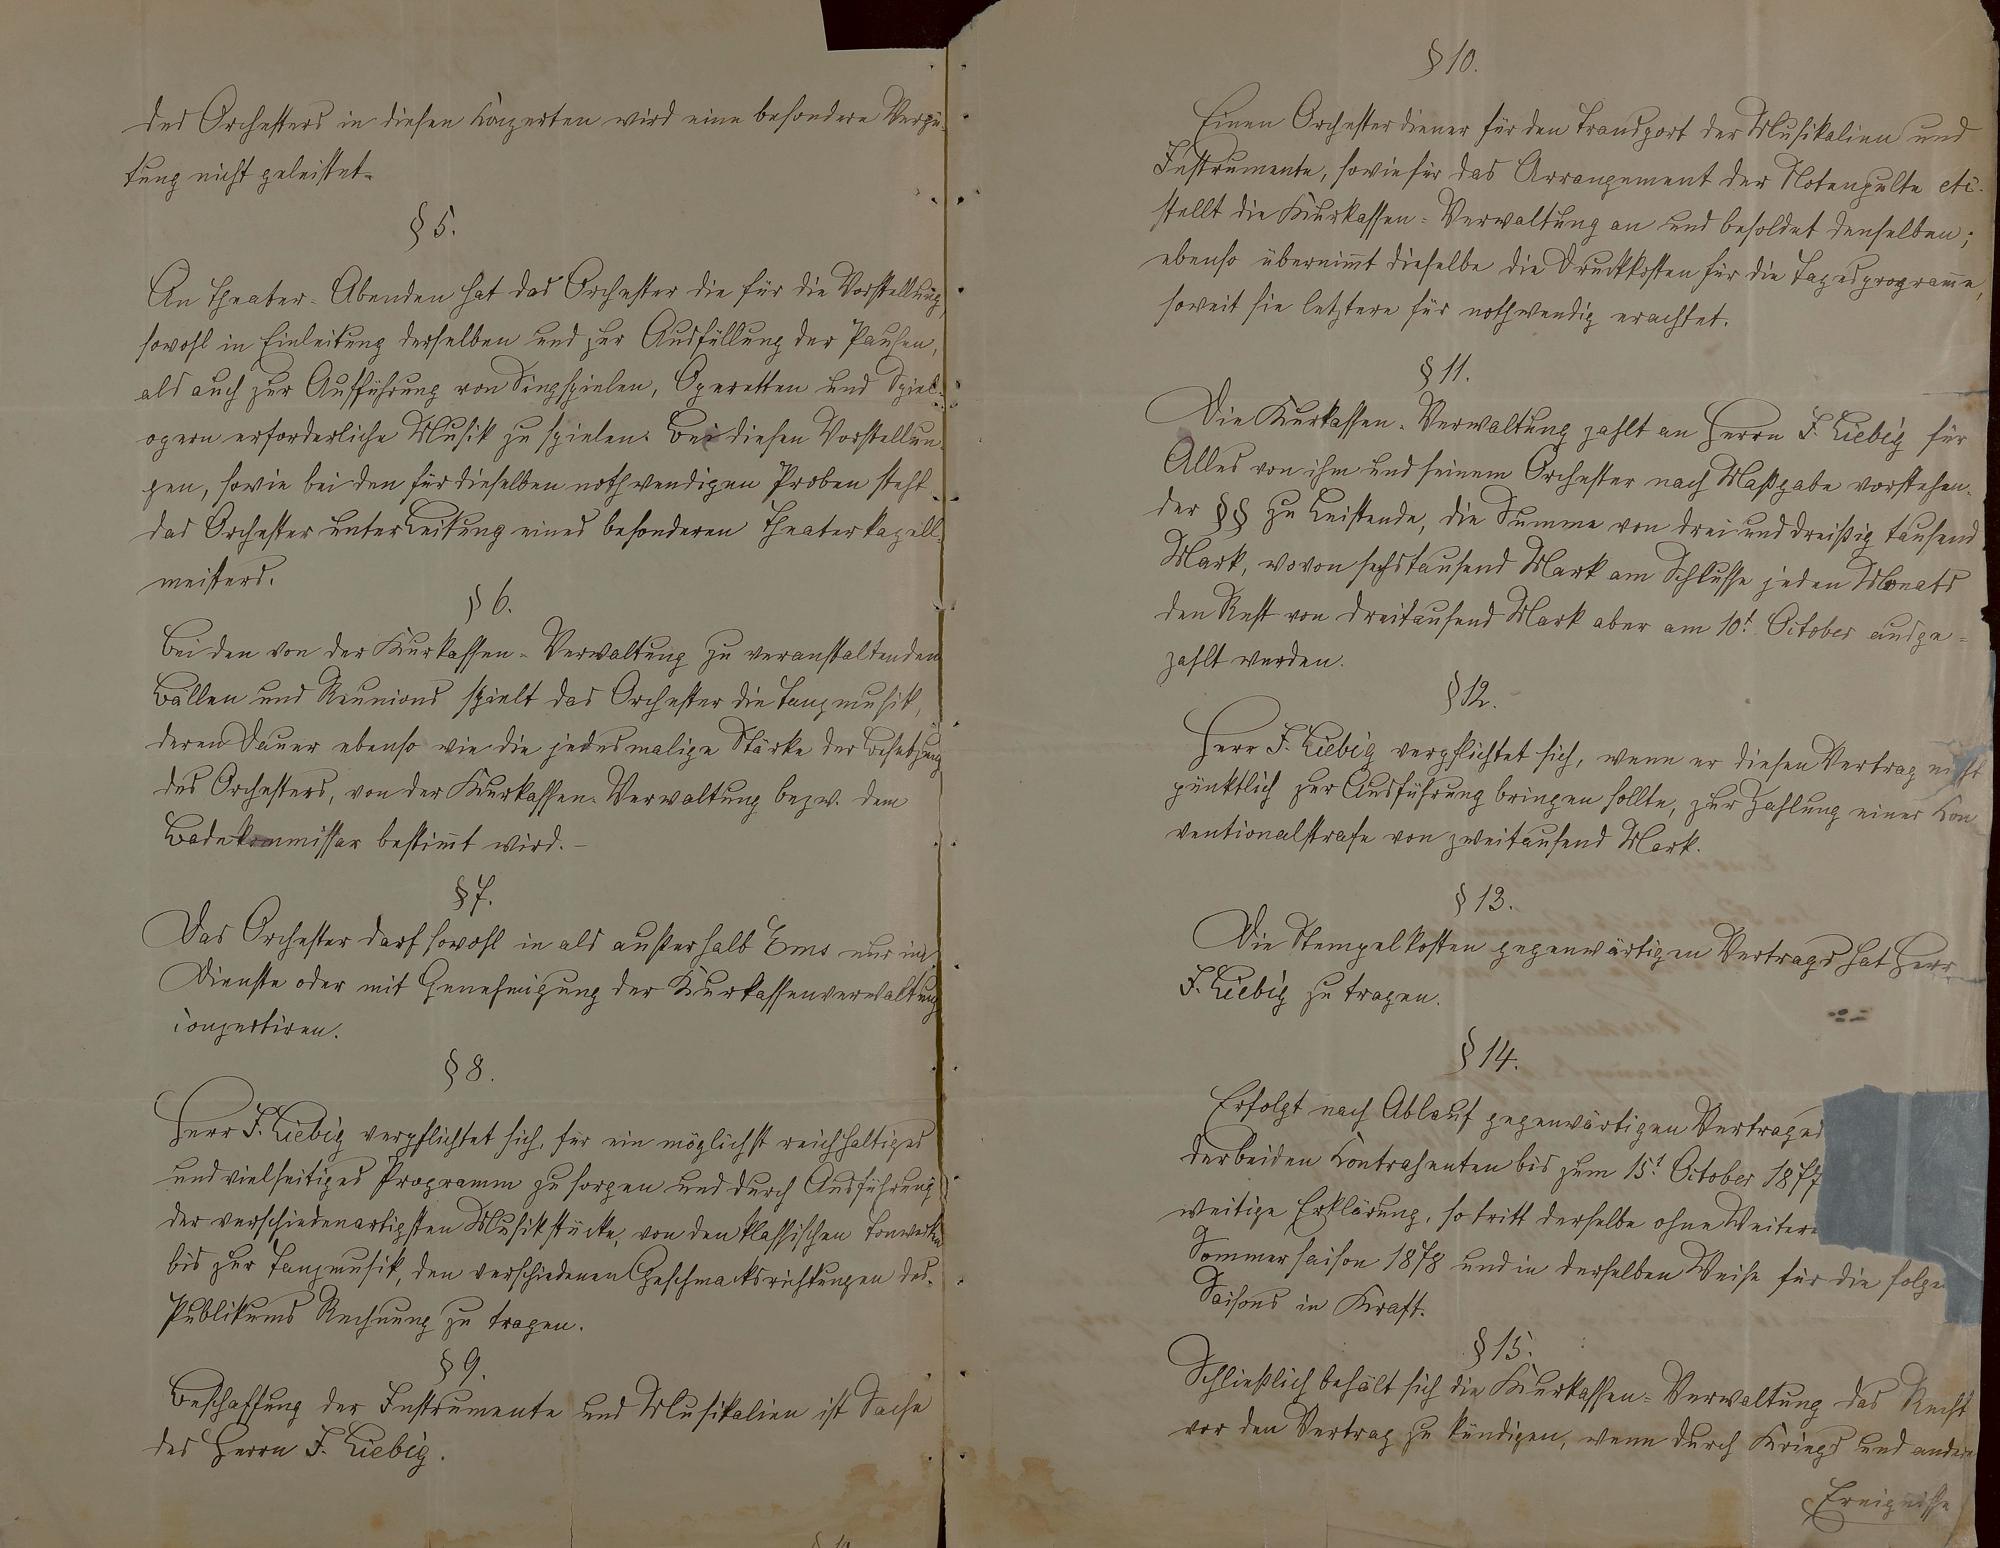 des Orchesters in diesen Konzerten wird eine besondere Vergü-
tung nicht geleistet.
§ 5.
An Theater-Abenden hat das Orchester die für die Vorstellung,
sowohl in Einleitung derselben und zur Ausfüllung der Pausen,
als auch zur Aufführung von Singspielen, Operetten und Spiel-
opern erforderliche Musik zu spielen. Bei diesen Vorstellun-
gen, sowie bei den für dieselben nothwendigen Proben steht
das Orchester unter Leitung eines besonderen Theaterkapell-
meisters.
§ 6.
Bei den von der Kurkassen-Verwaltung zu veranstaltenden
Bällen und Reunions spielt das Orchester die Tanzmusik,
deren Dauer ebenso wie die jedesmalige Stärke der Besetzung
des Orchesters, von der Kurkassen-Verwaltung bezw. dem
Badekommissar bestimt wird. –
§ 7.
Das Orchester darf sowohl in als außerhalb Ems nur im
Dienste oder mit Genehmigung der Kurkassenverwaltung
conzertiren.
§ 8.
Herr J. Liebig verpflichtet sich, für ein möglichst reichhaltiges
und vielseitiges Programm zu sorgen und durch Ausführung
der verschiedenartigsten Musikstücke, von den klassischen Tonwerken
bis zur Tanzmusik, den verschiedenen Geschmacksrichtungen des
Publikums Rechnung zu tragen.
§ 9.
Beschaffung der Instrumente und Musikalien ist Sache
des Herrn J. Liebig.
§ 10.
Einen Orchesterdiener für den Transport der Musikalien und
Instrumente, sowie für das Arrangement der Notenpulte etc.
stellt die Kurkassen-Verwaltung an und besoldet denselben;
ebenso übernimt dieselbe die Druckkosten für die Tagesprograme,
soweit sie letztere für nothwendig erachtet.
§ 11.
Die Kurkassen-Verwaltung zahlt an Herrn J. Liebig für
Alles von ihm und seinem Orchester nach Maßgabe vorstehen-
der §§ zu Leistende, die Summe von drei und dreißig tausend
Mark, wovon sechstausend Mark am Schlusse jeden Monats
den Rest von dreitausend Mark aber am 10t. October ausge-
zahlt werden.
§ 12.
Herr J. Liebig verpflichtet sich, wenn er diesen Vertrag nicht
pünktlich zur Ausführung bringen sollte, zur Zahlung einer Kon
ventionalstrafe von zweitausend Mark.
§ 13.
Die Stempelkosten gegenwärtigen Vertrags hat Herr
J. Liebig zu tragen.
§ 14.
Erfolgt nach Ablauf gegenwärtigen Vertrages
der beiden Kontrahenten bis zum 15t October 1877
weitige Erklärung, so tritt derselbe ohne Weitere
Sommersaison 1878 und in derselben Weise für die folge
Saisons in Kraft.
§ 15.
Schließlich behält sich die Kurkassen-Verwaltung das Recht
vor den Vertrag zu kündigen, wenn durch Kriegs und andere
Ereignisse